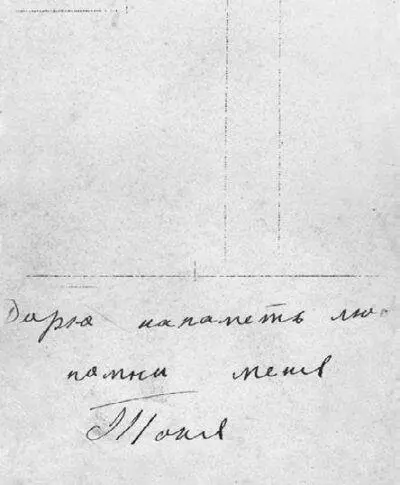 Дарю напаметь лю
помни меня
Тоня